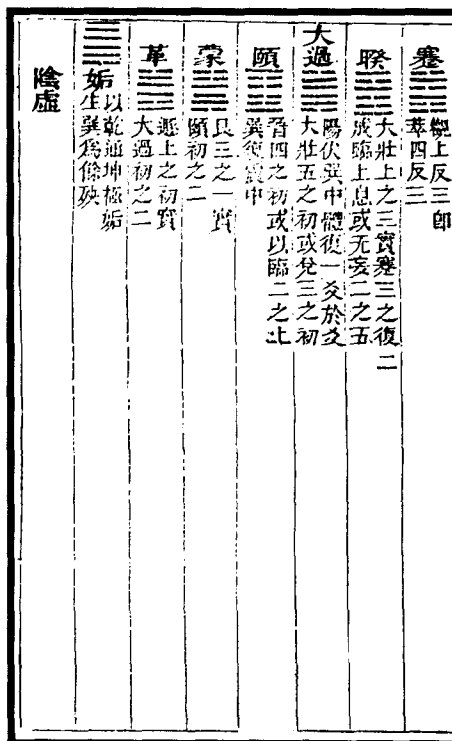 蹇
觀上反三即
萃四反三
睽
大壯上之三實蹇三之復二
成臨上息或无妄二之五
大過
陽伏巽中體復一爻於爻
大壯五之初或兌三之初
頤
晉四之初或以臨二之上
巽復震中
蒙
艮三之二實
頤初之二
革
遯上之初實
大過初之二
姤
以乾通坤極姤
生巽為餘殃
陰虛